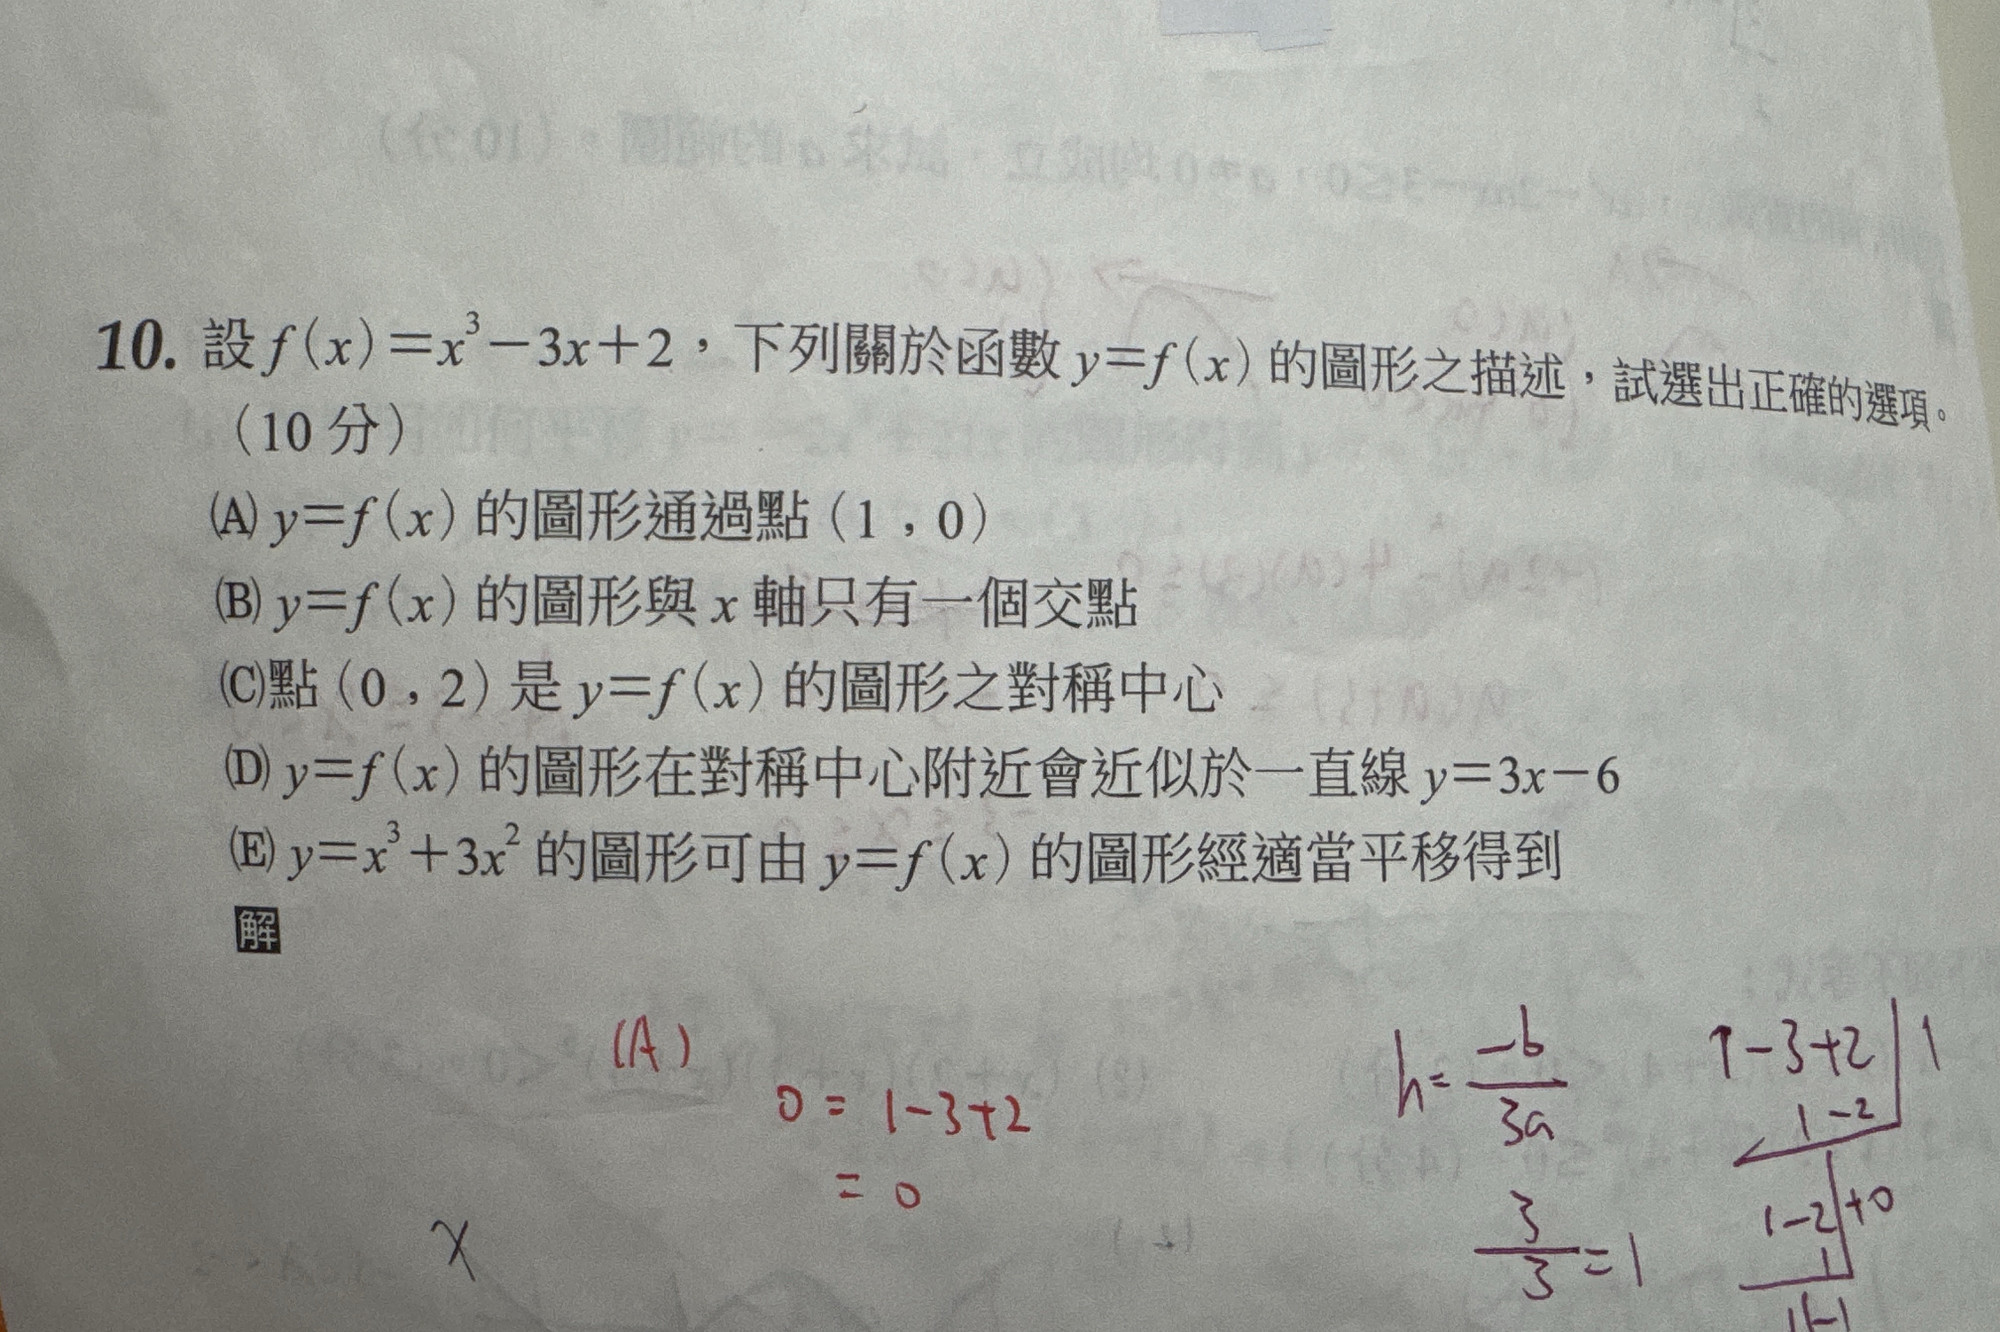 10. 設 f(x)=x³-3x+2,下列關於函數 y=f(x) 的圖形之描述,試選出正確的選項。
(10 分)
(A) y=f(x) 的圖形通過點(1,0)
(B) y=f(x) 的圖形與 x 軸只有一個交點
(C)點(0,2)是 y=f(x) 的圖形之對稱中心
(D) y=f(x) 的圖形在對稱中心附近會近似於一直線 y=3x-6
(E) y=x³+3x² 的圖形可由 y=f(x) 的圖形經適當平移得到
解
(A)
0 = 1-3+2
= 0
x
h= -b/3a
3/3 =1
1-3+2 | 1
1-2
1-2 +0
1